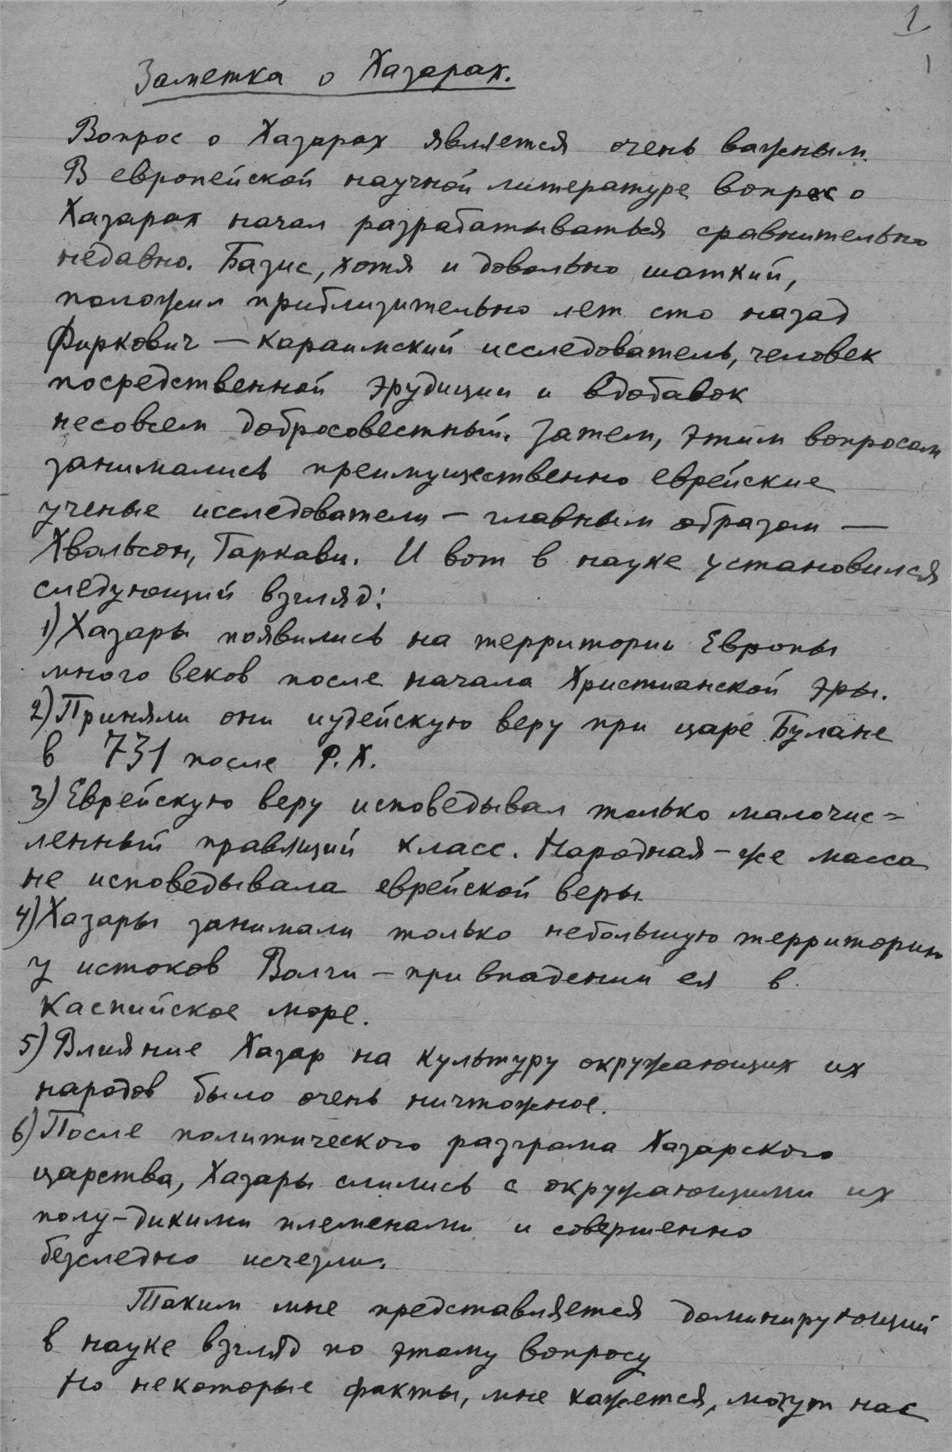 1
1
Заметка о Хазарах.
Вопрос о Хазарах является очень важным.
В европейской научной литературе вопрос о
Хазарах начал разрабатываться сравнительно
недавно. Базис, хотя и довольно шаткий,
положил приблизительно лет сто назад
Фиркович — караимский исследователь, человек
посредственной эрудиции и вдобавок
несовсем добросовестный. Затем, этим вопросом
занимались преимущественно еврейские
ученые исследователи — главным образом —
Хвольсон, Гаркави. И вот в науке установился
следующий взгляд:
1) Хазары появились на территории Европы
много веков после начала Христианской эры.
2) Приняли они иудейскую веру при царе Булане
в 731 после Р.Х.
3) Еврейскую веру исповедывал только малочис=
ленный правящий класс. Народная-же масса
не исповедывала еврейской веры
4) Хазары занимали только небольшую территорию
у истоков Волги — при впадении ея в
Каспийское море.
5) Влияние Хазар на культуру окружающих их
народов было очень ничтожное.
6) После политического разгрома Хазарского
царства, Хазары слились с окружающими их
полу-дикими племенами и совершенно
безследно исчезли.
Таким мне представляется доминирующий
в науке взгляд по этому вопросу
Но некоторые факты, мне кажется, могут нас